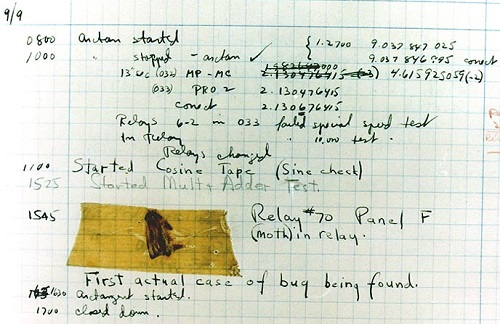 9/9
0800 Antan started {1.2700 9.037 847 025
1000 " stopped - antan ✓ 9.037 846 995 conect
13"uc (032) MP-MC 2.130476415 4.615925059(-2)
(033) PRO 2 2.130476415
conect 2.130676415
Relays 6-2 in 033 failed special speed test
In Relay " 10,000 test.
Relays changed
1100 Started Cosine Tape (Sine check)
1525 Started Mult + Adder Test.
1545 Relay #70 Panel F
(moth) in relay.
First actual case of bug being found.
1630 antangent started.
1700 closed down.